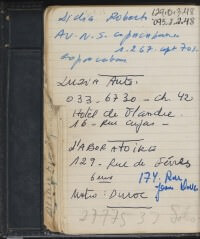 Lidia Roberts
Av. N. S. Copacabana
1.267 apt 701
Copacabana
Luzia
033-6730 - ch. 42
Hotel de Flandre
16 - Rue Cujas -
LABORATOIRE
129 - Rue de Sèvres
6ème
174, Rue
Jean
Métro: Duroc
27775 32